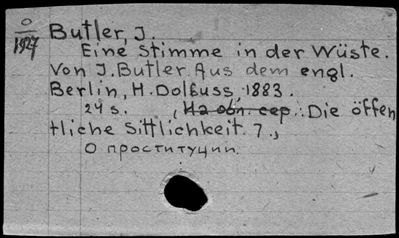 О
1927
Butler, J.
Eine Stimme in der Wüste.
Von J. Butler. Aus dem engl.
Berlin, H. Dolfuss 1883.
24 s. , На обл. сер.: Die öffen
tliche Sittlichkeit. 7.,
О проституции.